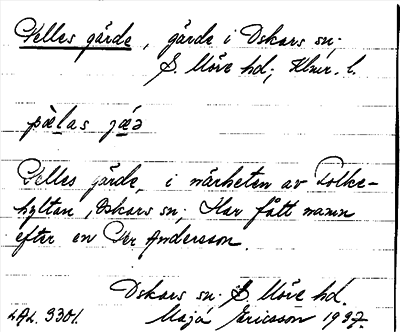 Pelles gärde, gärde i Oskars sn;
S. Möre hd; Klmr. l.
pælas jæɜ
Pelles gärde, i närheten av Folke-
hyltan, Oskars sn; Har fått namn
efter en Per Andersson.
Oskars sn. S. Möre hd.
LAL. 3301. Maja Ericsson 1937.